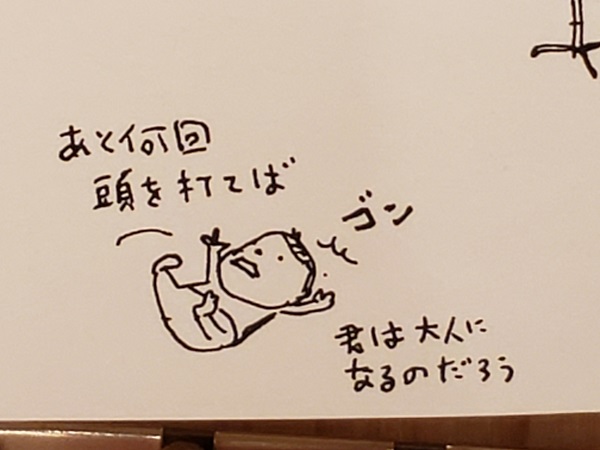 あと何回
頭を打てば
ゴン
君は大人に
なるのだろう